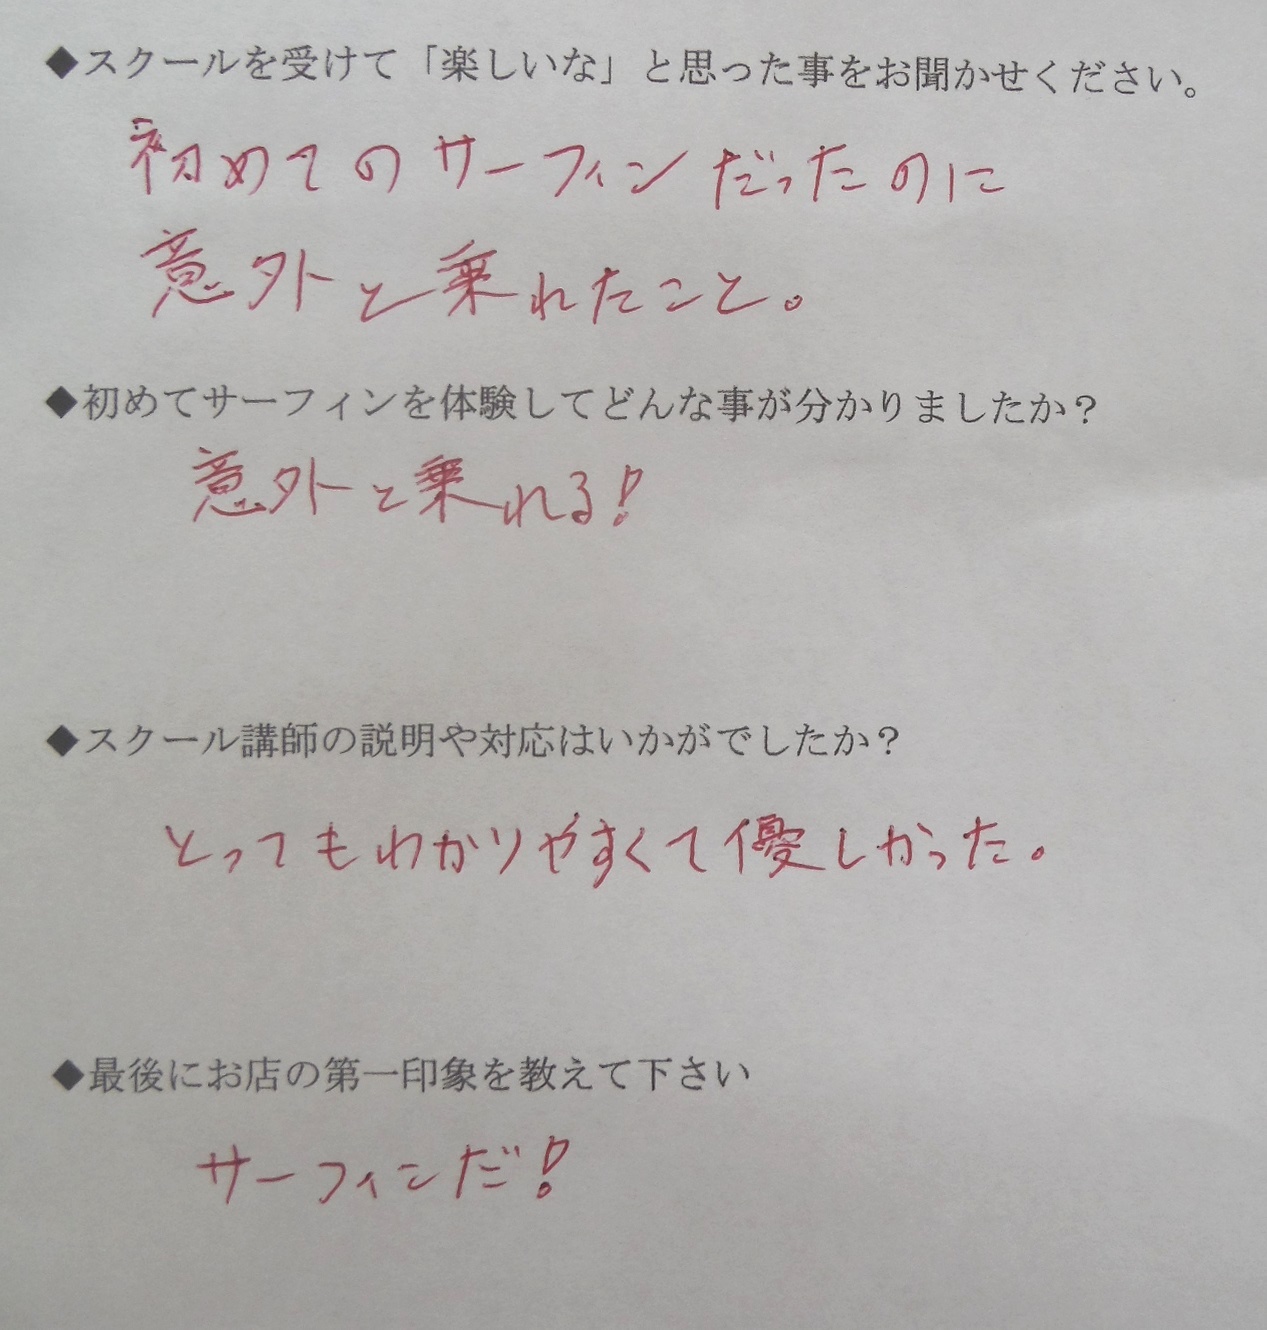 ◆スクールを受けて「楽しいな」と思った事をお聞かせください。
初めてのサーフィンだったのに
意外と乗れたこと。
◆初めてサーフィンを体験してどんな事が分かりましたか?
意外と乗れる!
◆スクール講師の説明や対応はいかがでしたか?
とってもわかりやすくて優しかった。
◆最後にお店の第一印象を教えて下さい
サーフィンだ!